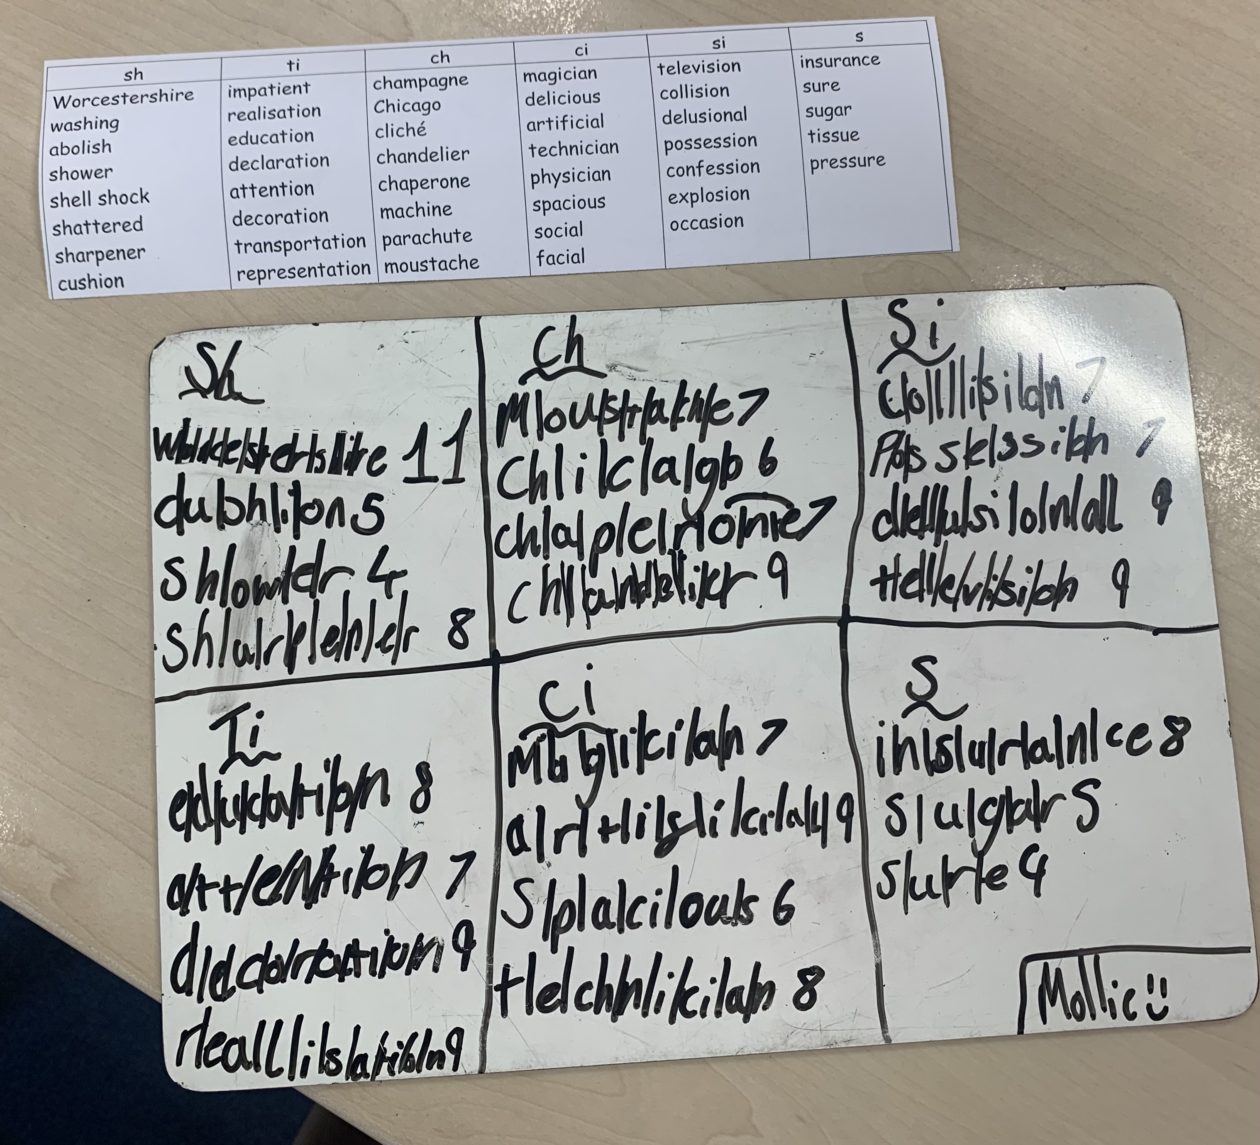 sh ti ch ci si s
Worcestershire impatient champagne magician television insurance
washing realisation Chicago delicious collision sure
abolish education cliché artificial delusional sugar
shower declaration chandelier technician possession tissue
shell shock attention chaperone physician confession pressure
shattered decoration machine spacious explosion
sharpener transportation parachute social occasion
cushion representation moustache facial
Sh
11
5
sh/ow/er 4
sh/ar/p/e/n/er 8
Ch
7
Ch/i/c/a/g/o 6
ch/a/p/e/r/o/ne 7
9
Si
c/o/ll/i/si/o/n 7
P/o/ss/e/ss/io/n 7
d/e/l/u/si/o/n/al 9
t/e/l/e/v/i/si/o/n 9
Ti
e/d/u/c/a/ti/o/n 8
a/tt/e/n/ti/o/n 7
9
9
Ci
M/a/g/i/ci/a/n 7
9
S/p/a/ci/ou/s 6
t/e/ch/n/i/ci/a/n 8
S
in/s/u/r/a/n/ce 8
s/u/g/ar 5
s/u/r/e 4
Mollie